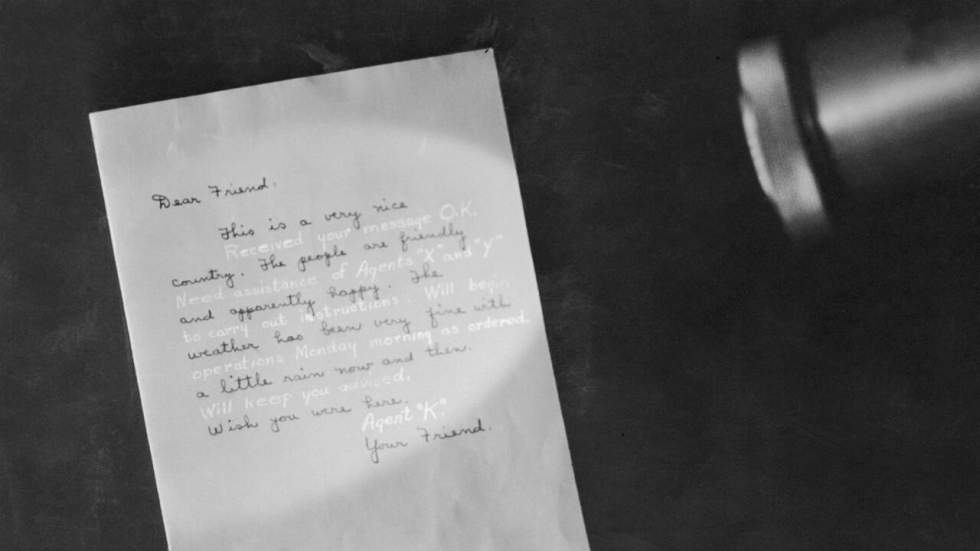 Dear Friend,
This is a very nice
Received your message O.K.
country. The people are friendly
Need assistance of Agents "X" and "Y"
and apparently happy. The
to carry out instructions. Will begin
weather has been very fine with
operations Monday morning as ordered.
a little rain now and then.
Will keep you advised.
Wish you were here.
Agent "K".
Your Friend.